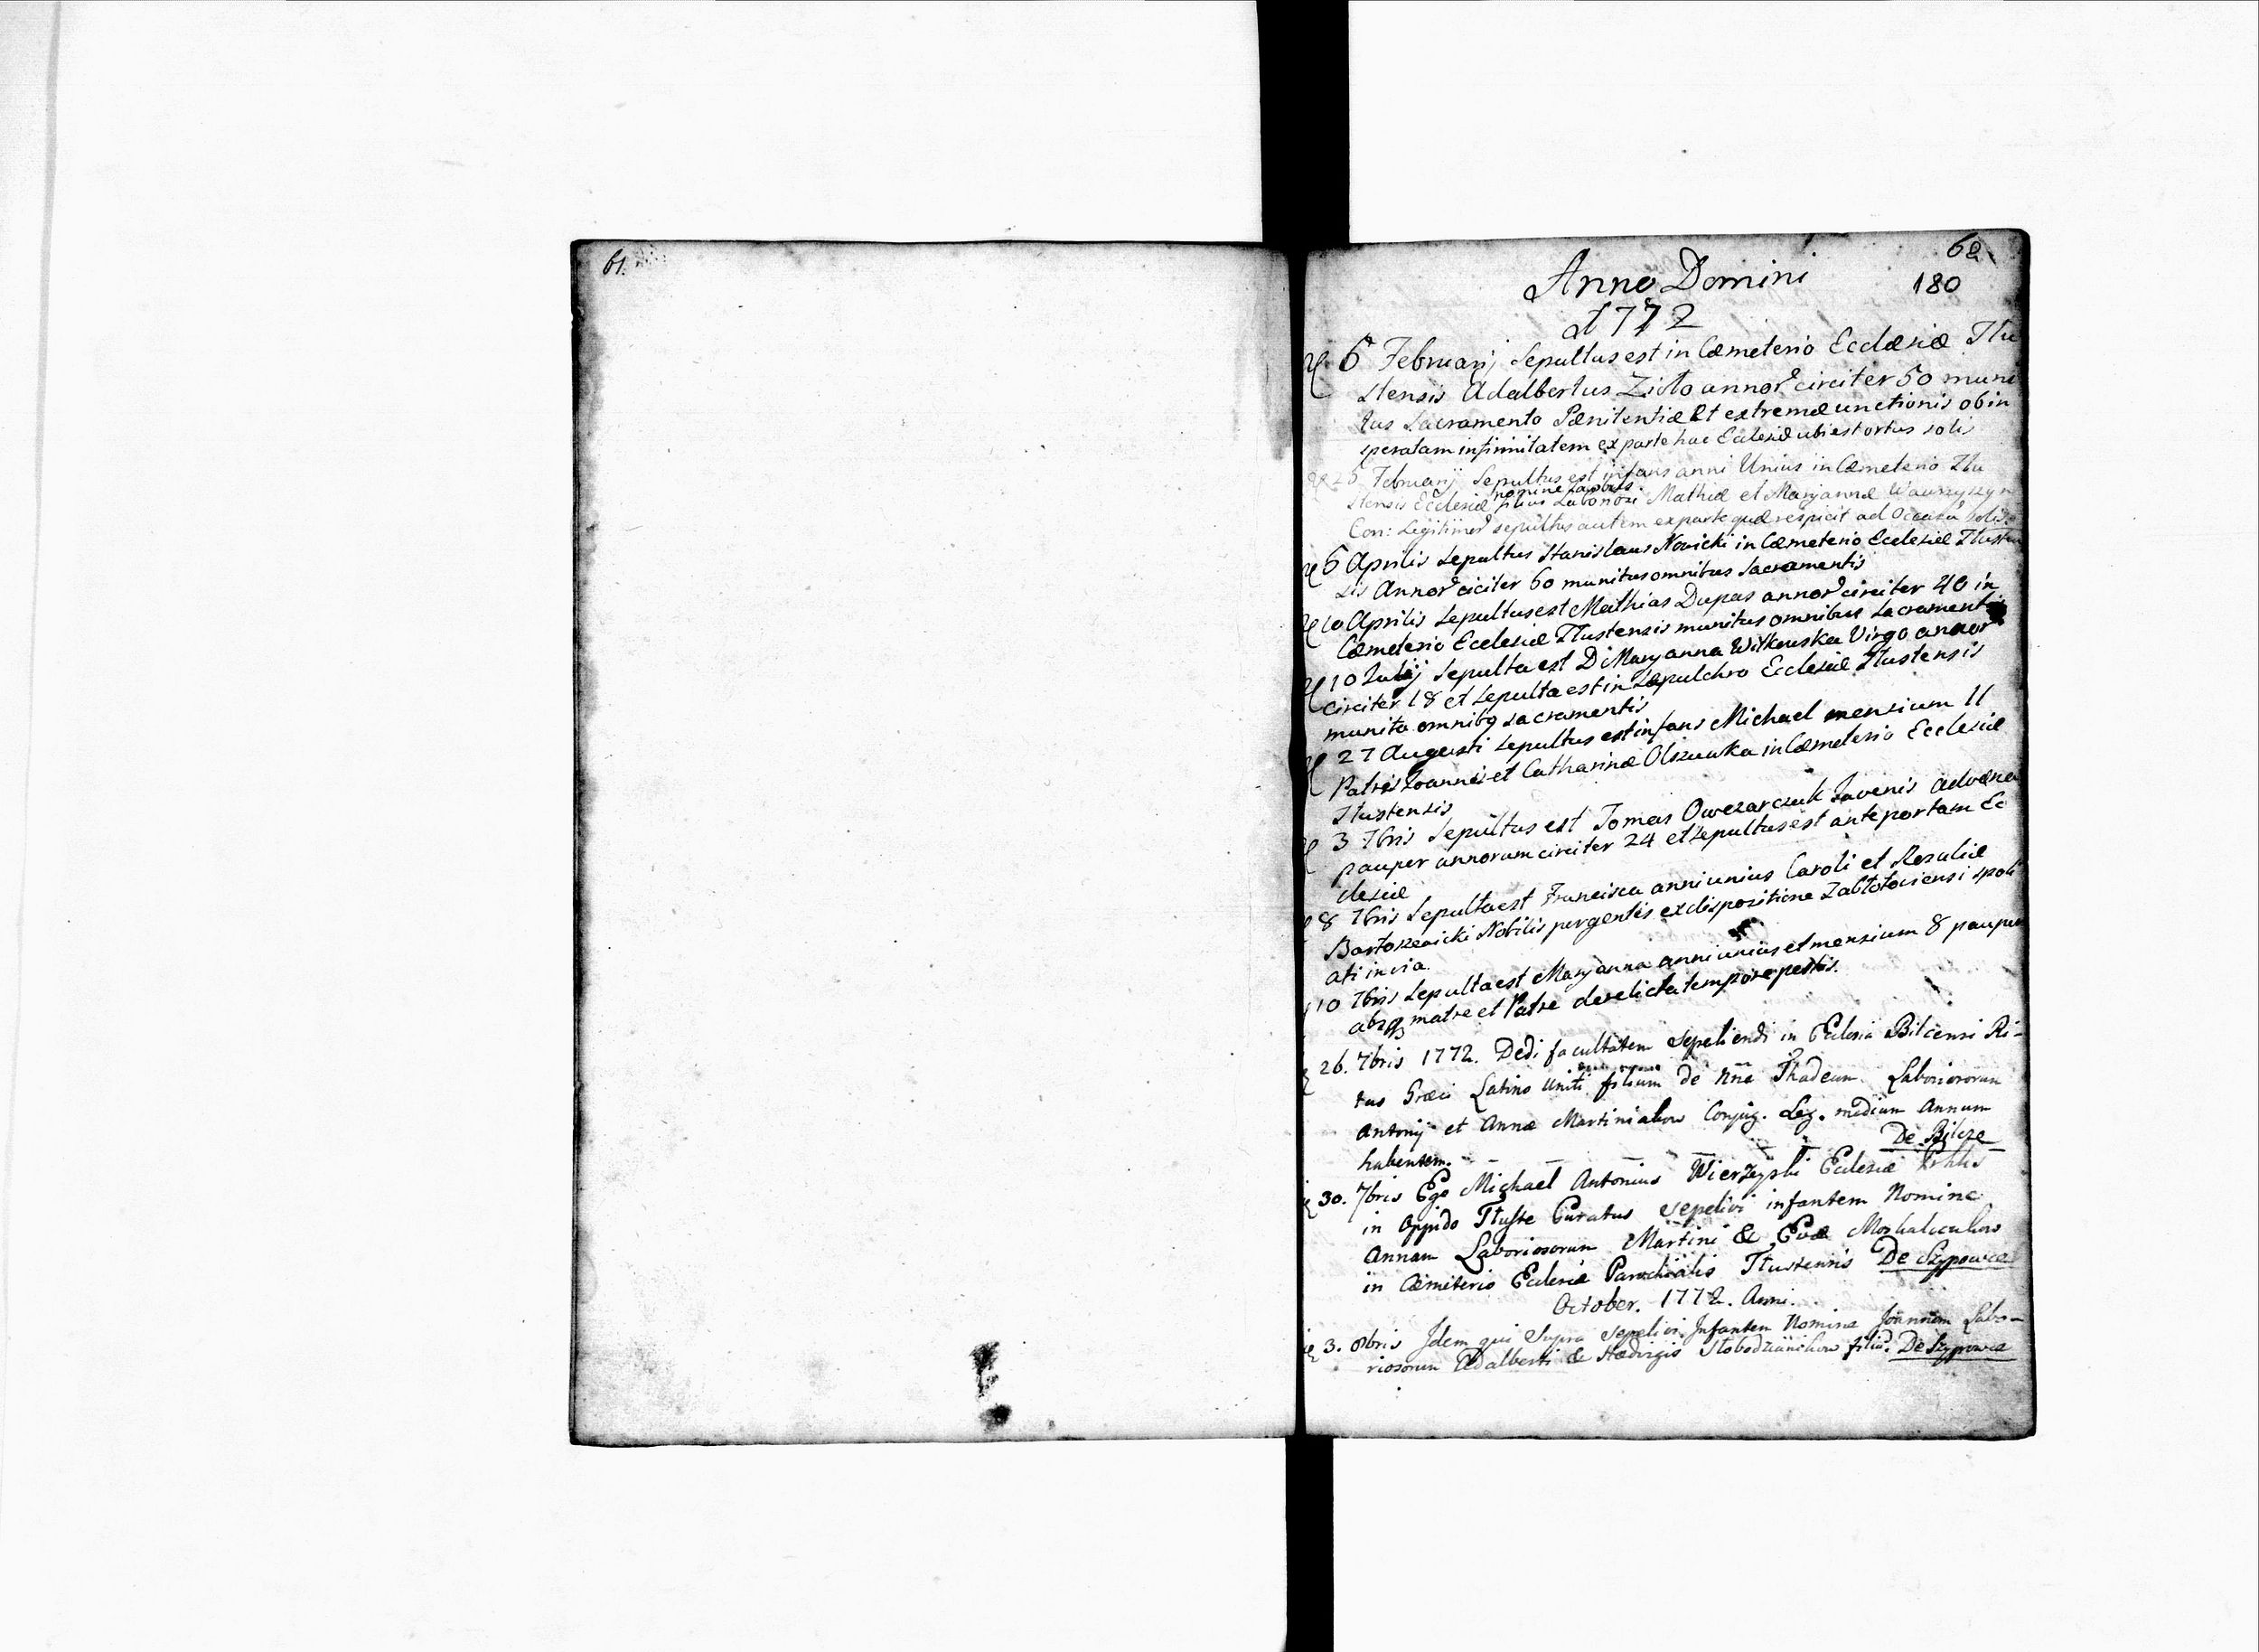 61.
62
180
Anno Domini
1772
6 Februarij Sepultus est in Cæmeterio Ecclesiæ Tłu
stensis Adalbertus Zioło annor circiter 50 muni
tus Sacramento Pænitentiæ Et extremæ unctionis ob in
speratam infirmitatem ex parte hac Eclesiæ ubi est ortus solis
25 Februarij Sepultus est infans anni Unius in Cæmeterio Tłu
nomine
stensis Ecclesiæ filius Mathiæ et Maryannæ
Con: Legitimor sepultus autem ex parte quæ respicit ad Occasū solis
6 Aprilis Sepultus Stanislaus Novicki in Cæmeterio Ecclesiæ Tłusten
sis Annor ciciter 60 munitus omnibus Sacramentis
10 Aprilis Sepultus est Mathias Dupas annor circiter 40 in
Cæmeterio Ecclesiæ Tłustensis munitus omnibus Sacramentis
10 Julij Sepulta est D Maryanna Witkouska Virgo annor
circiter 18 et Sepulta est in Sepulchro Ecclesiæ Tłustensis
munita omnibq sacramentis
27 Augusti Sepultus est infans Michael mensium 11
Patris Joannis et Catharinæ Olszeuka in Cæmeterio Ecclesiæ
Tłustensis
3 7bris Sepultus est Tomas Owczarczuk Juvenis advena
pauper annorum circiter 24 et sepultus est ante portam Ec
clesiæ
8 7bris Sepulta est Francisca anni unius Caroli et Rosaliæ
Bartoszewicki Nobilis pergentis ex dispozitione Zabłotowiensi spoli
ati in via.
10 7bris Sepulta est Maryanna anni unius et mensium 8 pauper
absq matre et Patre derelicta tempore pestis.
26. 7bris 1772. Dedi facultatem Sepeliendi in Eclesia Bilcensi Ri-
tus Græci Latino Uniti filium de Nne Thadeum Laboriosorum
Antonij et Annæ Martiniakow Conjug. Leg. medium Annum
habentem. De Bilcze
30. 7bris Ego Michael Antonius Wierzeyski Eclesiæ
in Oppido Tłuste Curatus sepelivi infantem Nomine
Annam Laboriosorum Martini & Evæ
in Cæmeterio Eclesiæ Parochialis Tłustensis De Szypowce
October. 1772. Anni.
3. 8bris Idem qui Supra Sepelivi Infantem Nomine Joannem Labo-
riosorum Adalberti & Hedvigis filiū. De Szypowce